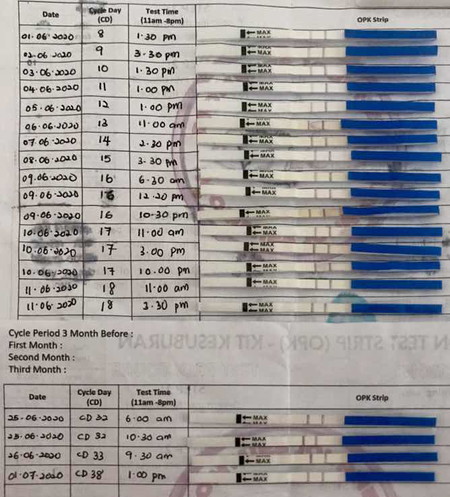 Date Cycle Day (CD) Test Time (11am -8pm) OPK Strip
01.06.2020 8 1.30 pm MAX
02.06.2020 9 3.30 pm MAX
03.06.2020 10 1.30 pm MAX
04.06.2020 11 1.00 pm MAX
05.06.2020 12 1.00 pm MAX
06.06.2020 13 11.00 am MAX
07.06.2020 14 2.30 pm MAX
08.06.2020 15 3.30 pm MAX
09.06.2020 16 6.30 am MAX
09.06.2020 16 12.20 pm MAX
09.06.2020 16 10.30 pm MAX
10.06.2020 17 11.00 am MAX
10.06.2020 17 3.00 pm MAX
10.06.2020 17 10.00 pm MAX
11.06.2020 18 11.00 am MAX
11.06.2020 18 3.30 pm MAX
Cycle Period 3 Month Before :
First Month :
Second Month :
Third Month :
Date Cycle Day (CD) Test Time (11am -8pm) OPK Strip
25-06-2020 CD 32 6.00 am MAX
CD 32 10.30 am MAX
26-06-2020 CD 33 9.30 am MAX
01-07-2020 CD 38 1.00 pm MAX